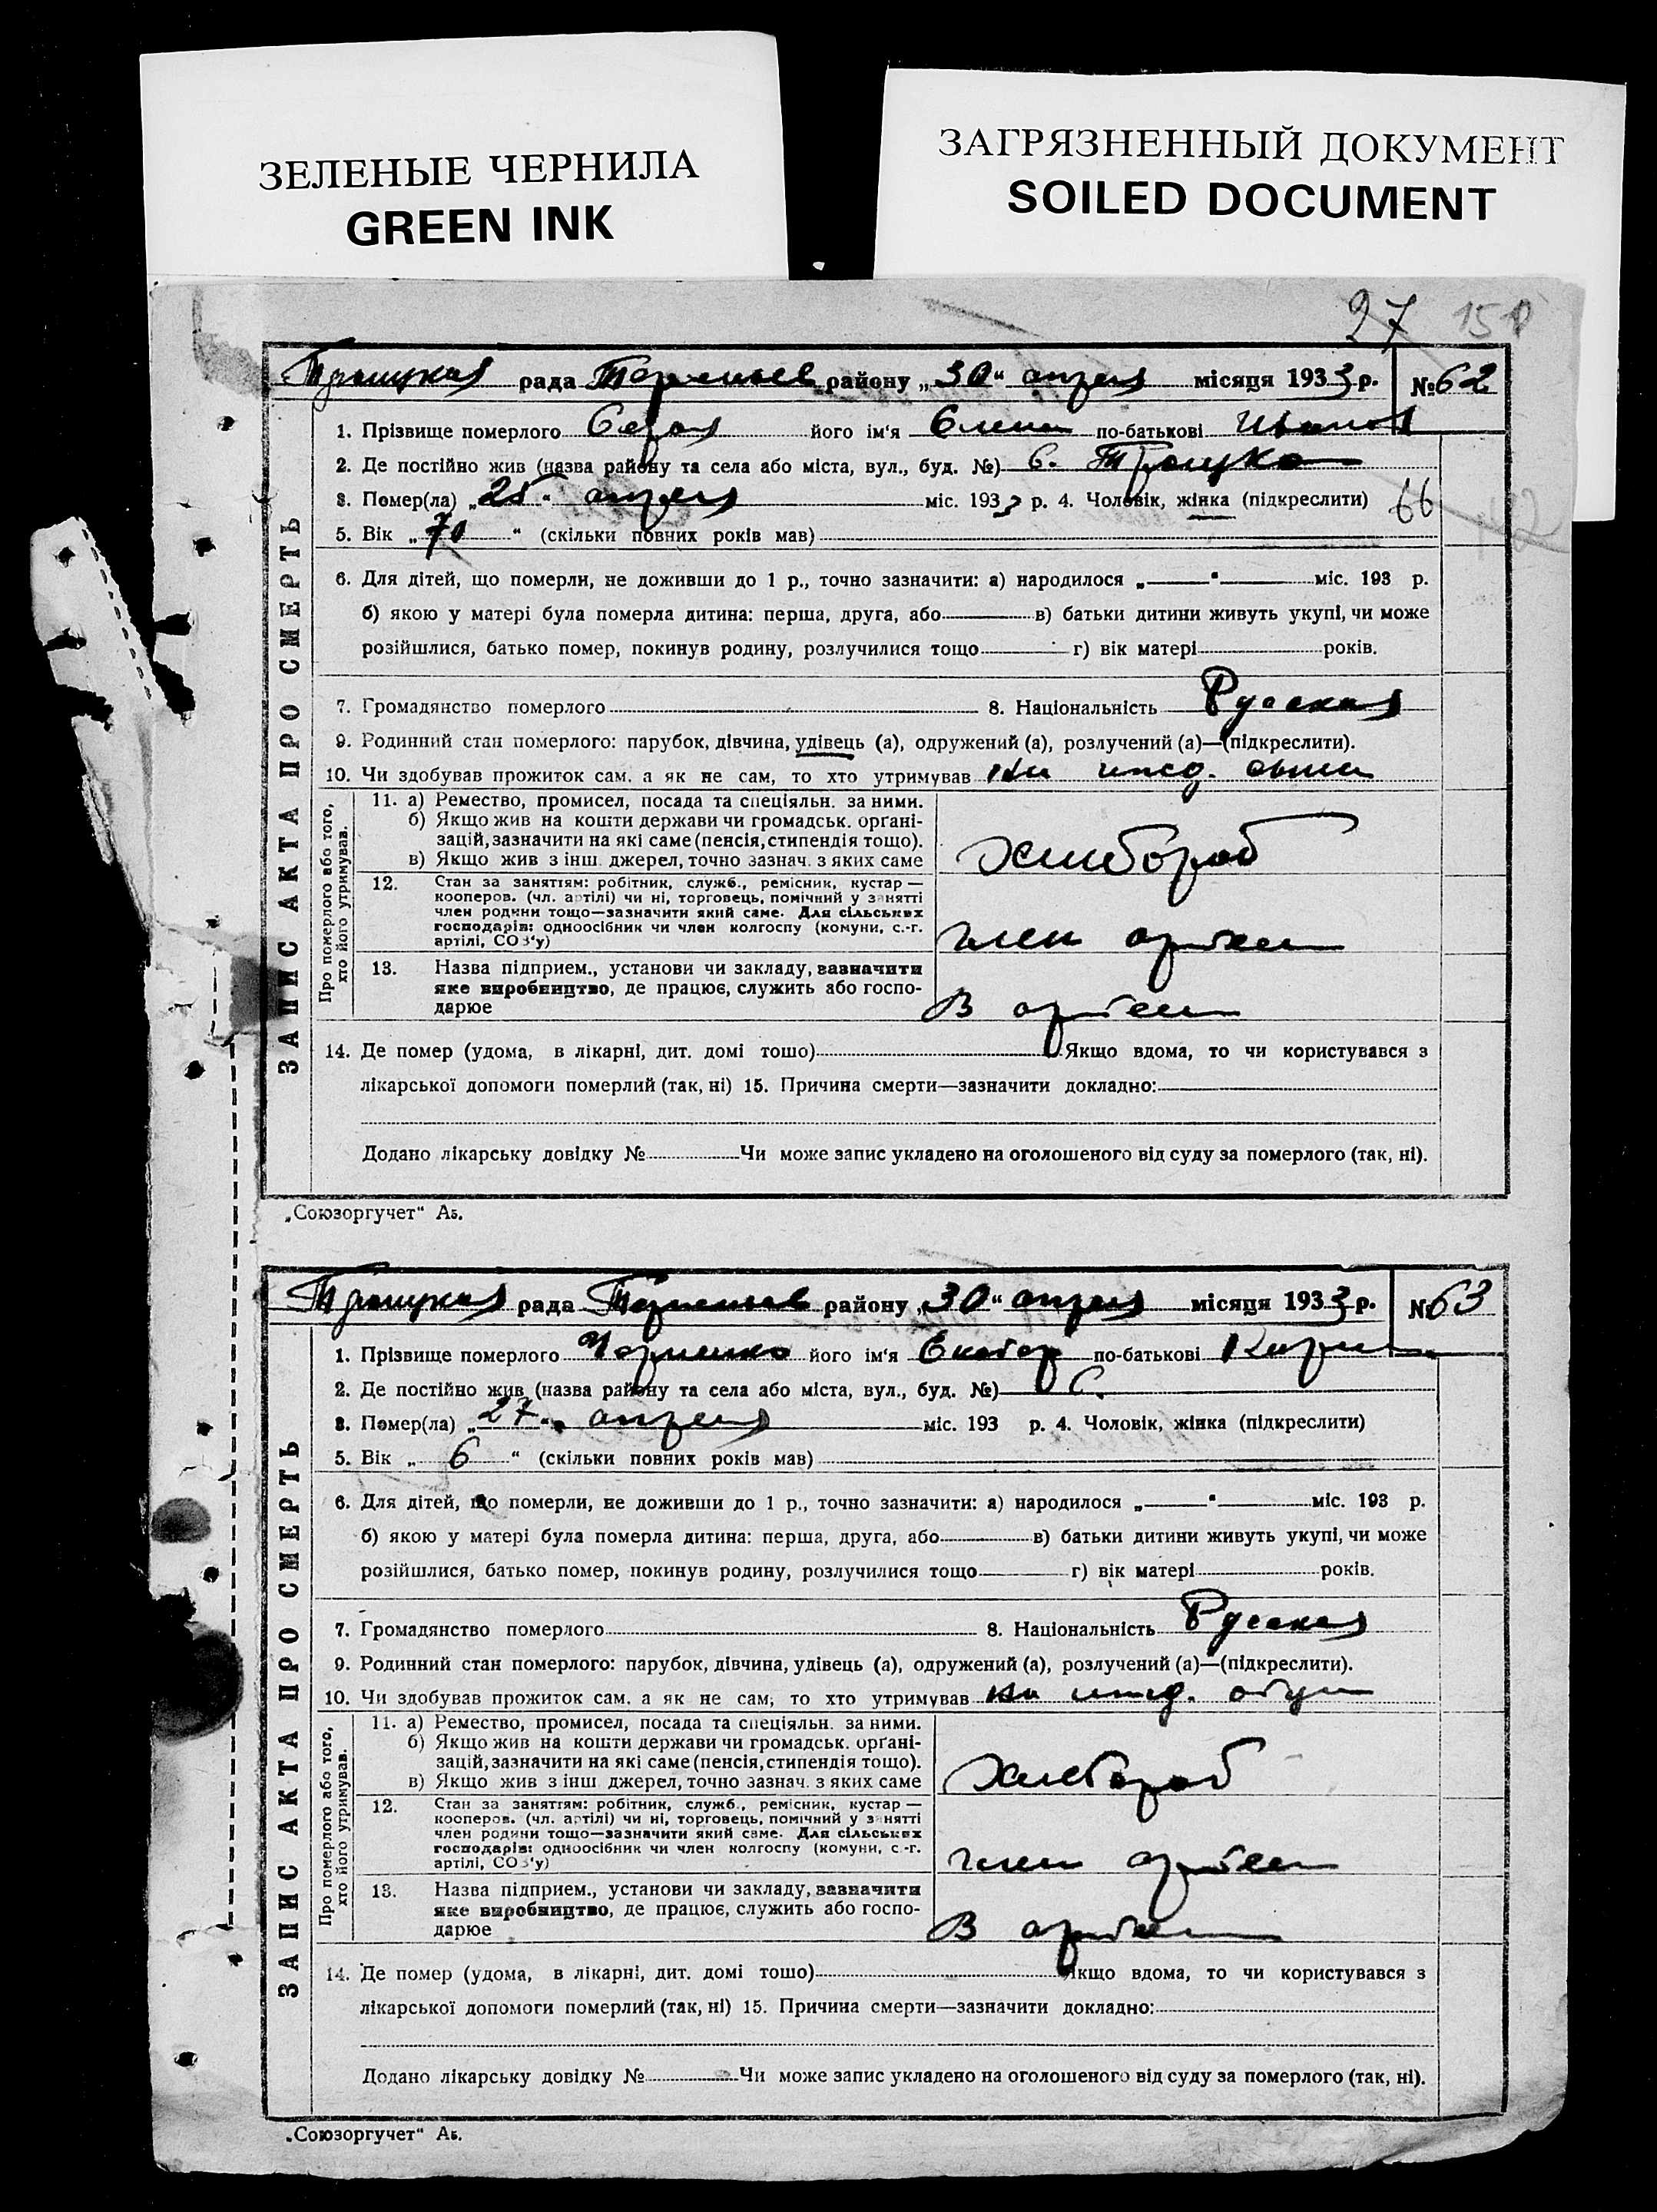 ЗЕЛЕНЫЕ ЧЕРНИЛА
GREEN INK
ЗАГРЯЗНЕННЫЙ ДОКУМЕНТ
SOILED DOCUMENT
27 150
рада району „30“ апреля місяця 1933 р. № 62
ЗАПИС АКТА ПРО СМЕРТЬ
1. Прізвище померлого його ім'я Елена по-батькові Иванов
2. Де постійно жив (назва району та села або міста, вул., буд. №) с. Троицко
3. Помер(ла) „25“ апреля міс. 1933 р. 4. Чоловік, жінка (підкреслити) 66
5. Вік „70“ (скільки повних років мав)
6. Для дітей, що померли, не доживши до 1 р., точно зазначити: а) народилося „—“ міс. 193 р.
б) якою у матері була померла дитина: перша, друга, або в) батьки дитини живуть укупі, чи може
розійшлися, батько помер, покинув родину, розлучилися тощо г) вік матері років.
7. Громадянство померлого 8. Національність Русская
9. Родинний стан померлого: парубок, дівчина, удівець (а), одружений (а), розлучений (а)—(підкреслити).
10. Чи здобував прожиток сам, а як не сам, то хто утримував На ижд. сына
Про померлого або того, хто його утримував.
11. а) Ремество, промисел, посада та спеціяльн. за ними.
б) Якщо жив на кошти держави чи громадськ. організацій, зазначити на які саме (пенсія, стипендія тощо).
в) Якщо жив з інш. джерел, точно зазнач. з яких саме
Хлебороб
12. Стан за заняттям: робітник, служб., ремісник, кустар —
кооперов. (чл. артілі) чи ні, торговець, помічний у занятті
член родини тощо—зазначити який саме. Для сільських
господарів: одноосібник чи член колгоспу (комуни, с.-г.
артілі, СОЗ'у)
член артели
13. Назва підприєм., установи чи закладу, зазначити
яке виробництво, де працює, служить або госпо-
дарює
В артели
14. Де помер (удома, в лікарні, дит. домі тошо) Якщо вдома, то чи користувався з
лікарської допомоги померлий (так, ні) 15. Причина смерти—зазначити докладно:
Додано лікарську довідку № Чи може запис укладено на оголошеного від суду за померлого (так, ні).
„Союзоргучет“ Аб.
рада району „30“ апреля місяця 1933 р. № 63
ЗАПИС АКТА ПРО СМЕРТЬ
1. Прізвище померлого його ім'я Екатер по-батькові
2. Де постійно жив (назва району та села або міста, вул., буд. №) С.
3. Помер(ла) „27“ апреля міс. 193 р. 4. Чоловік, жінка (підкреслити)
5. Вік „6“ (скільки повних років мав)
6. Для дітей, що померли, не доживши до 1 р., точно зазначити: а) народилося „—“ міс. 193 р.
б) якою у матері була померла дитина: перша, друга, або в) батьки дитини живуть укупі, чи може
розійшлися, батько помер, покинув родину, розлучилися тощо г) вік матері років.
7. Громадянство померлого 8. Національність Русская
9. Родинний стан померлого: парубок, дівчина, удівець (а), одружений (а), розлучений (а)—(підкреслити).
10. Чи здобував прожиток сам, а як не сам, то хто утримував На ижд. отца
Про померлого або того, хто його утримував.
11. а) Ремество, промисел, посада та спеціяльн. за ними.
б) Якщо жив на кошти держави чи громадськ. органі-
зацій, зазначити на які саме (пенсія, стипендія тощо).
в) Якщо жив з інш. джерел, точно зазнач. з яких саме
Хлебороб
12. Стан за заняттям: робітник, служб., ремісник, кустар —
кооперов. (чл. артілі) чи ні, торговець, помічний у занятті
член родини тощо—зазначити який саме. Для сільських
господарів: одноосібник чи член колгоспу (комуни, с.-г.
артілі, СОЗ'у)
член артели
13. Назва підприєм., установи чи закладу, зазначити
яке виробництво, де працює, служить або госпо-
дарює
В артели
14. Де помер (удома, в лікарні, дит. домі тошо) Якщо вдома, то чи користувався з
лікарської допомоги померлий (так, ні) 15. Причина смерти—зазначити докладно:
Додано лікарську довідку № Чи може запис укладено на оголошеного від суду за померлого (так, ні).
„Союзоргучет“ Аб.